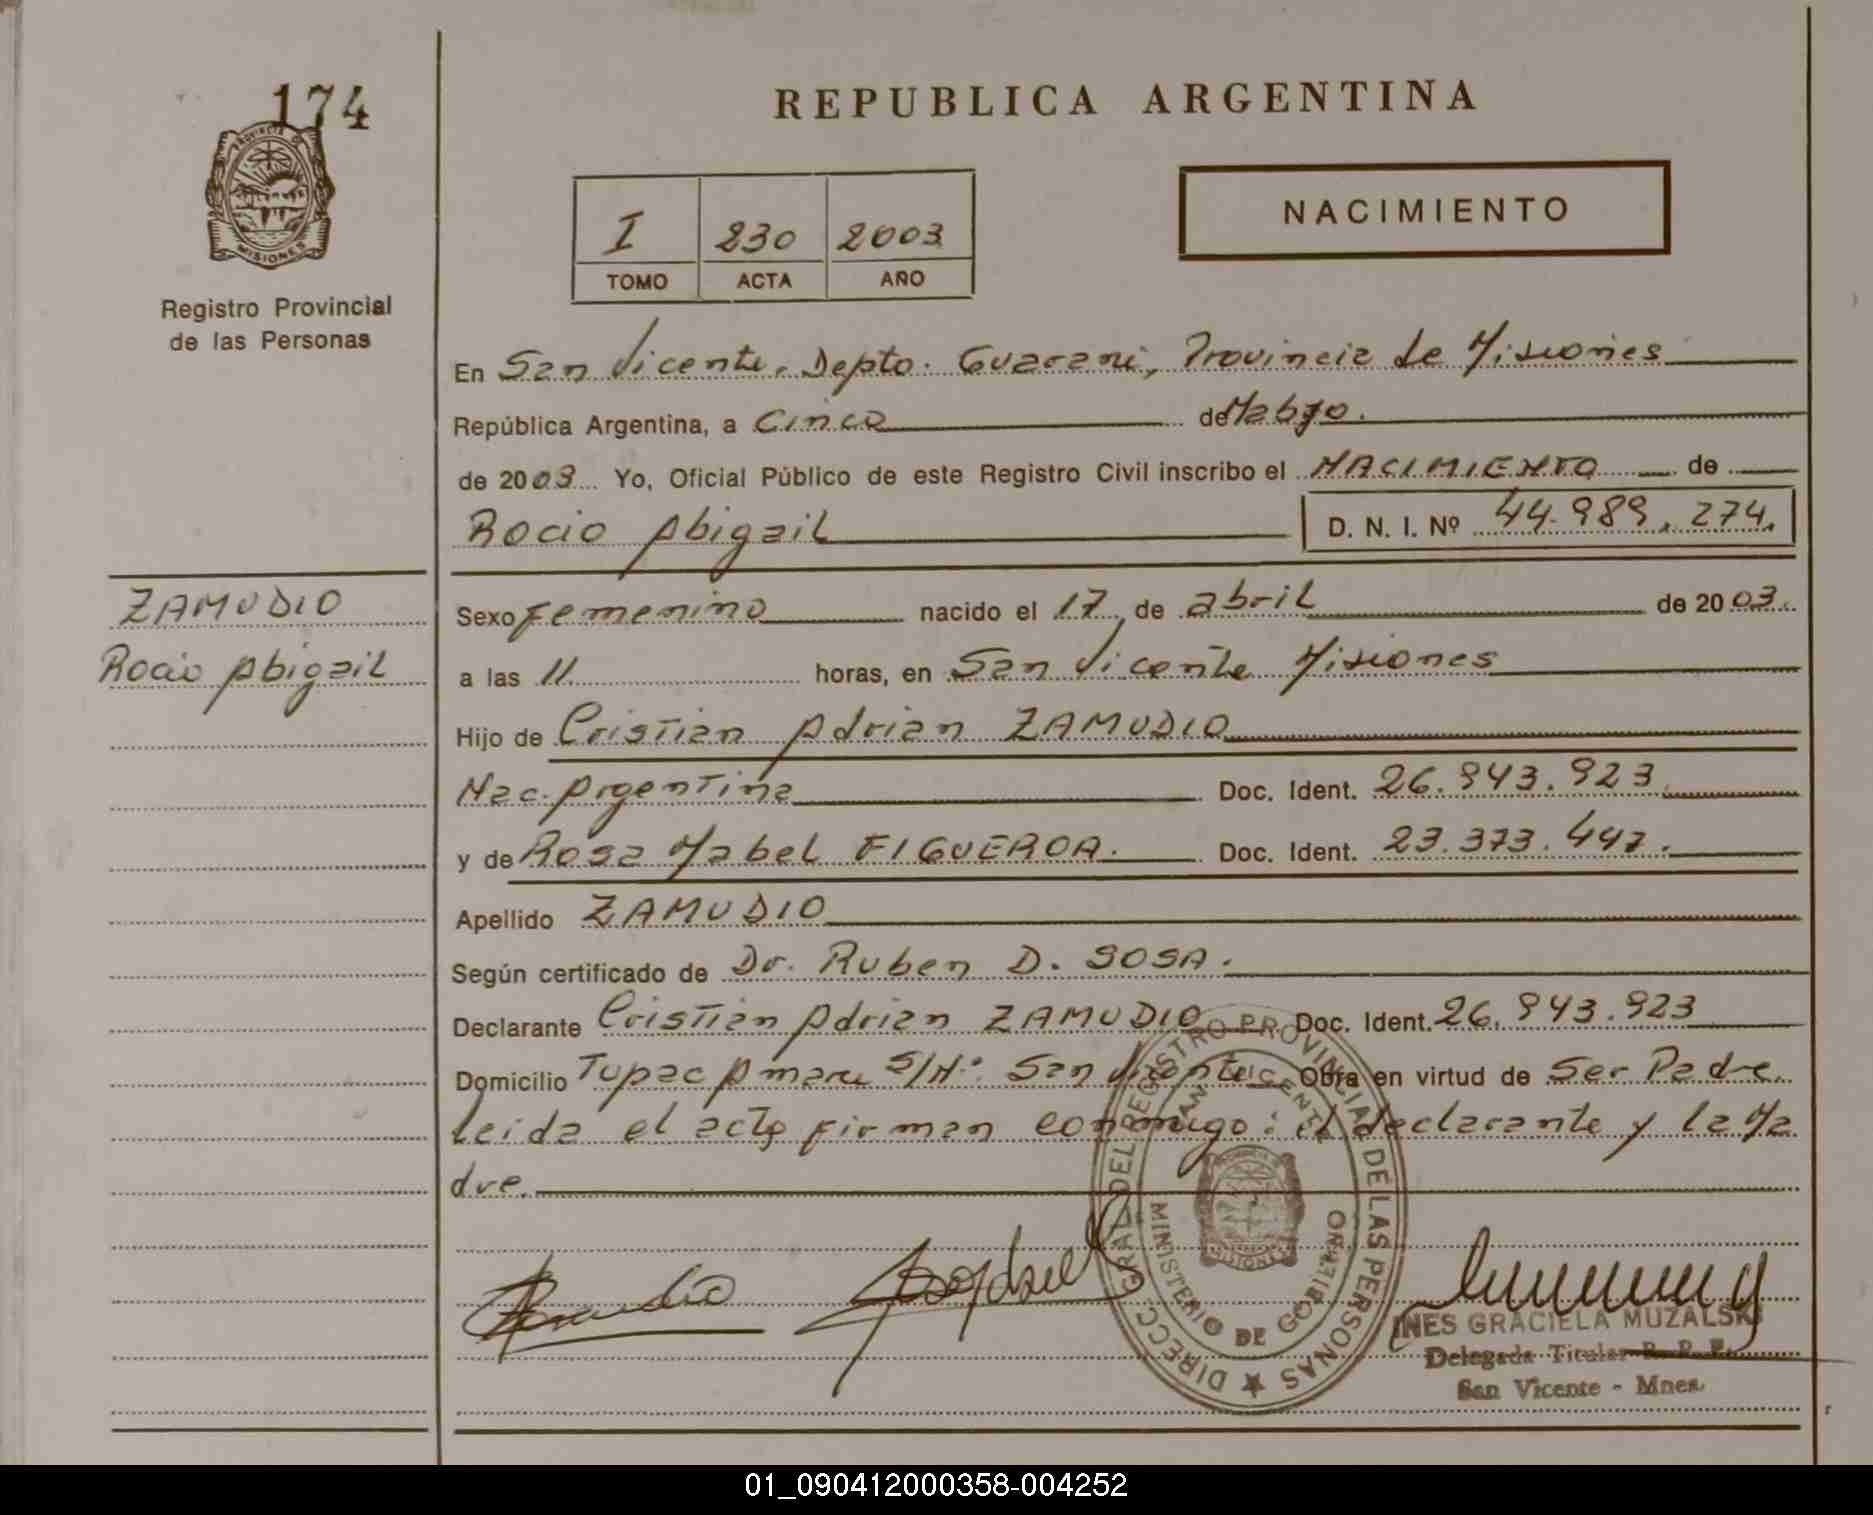 174
REPUBLICA ARGENTINA
PROVINCIA DE
MISIONES
Registro Provincial
de las Personas
NACIMIENTO
I 230 2003
TOMO ACTA AÑO
En San Vicente, Depto. Guarani, Provincia de Misiones
República Argentina, a Cinco de
de 2003 Yo, Oficial Público de este Registro Civil inscribo el NACIMIENTO de
Rocio Abigail D. N. I. Nº 44.989.274.
ZAMUDIO
Rocio Abigail
Sexo femenino nacido el 17 de abril de 2003.
a las 11 horas, en San Vicente Misiones
Hijo de Cristian Adrian ZAMUDIO
Nac. Argentina Doc. Ident. 26.943.923
y de Rosa Mabel FIGUEROA. Doc. Ident. 23.373.447.
Apellido ZAMUDIO
Según certificado de Dr. Ruben D. SOSA.
Declarante Cristian Adrian ZAMUDIO Doc. Ident. 26.943.923
Domicilio Tupac Amaru S/Nº San Vicente Obra en virtud de Ser Padre
leida el acta firman conmigo: el declarante y la Ma
dre.
DIRECC. GRAL. DEL REGISTRO PROVINCIAL DE LAS PERSONAS
SAN VICENTE
MINISTERIO DE GOBIERNO
INES GRACIELA MUZALSKI
Delegada Titular R. P. P.
San Vicente - Mnes.
01_090412000358-004252